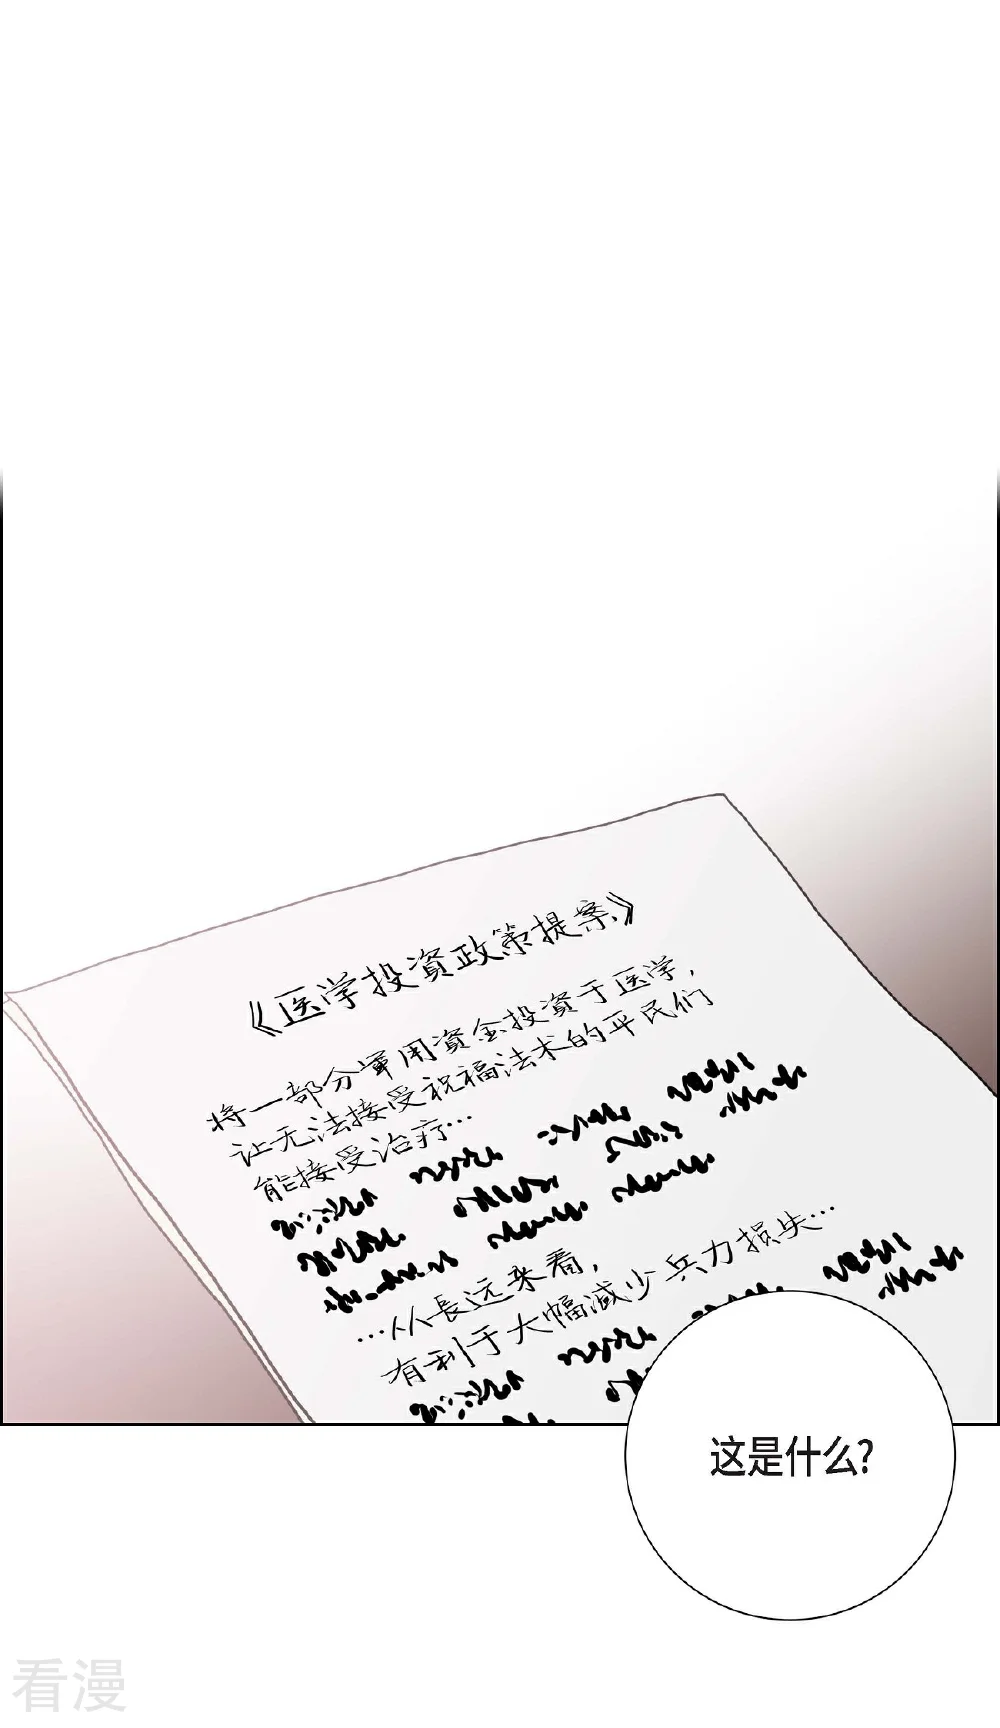 《医学投資政策提案》
将一部分軍用資金投資于医学，
让无法接受祝福法术的平民们
能接受治疗…
…从長远来看，
有利于大幅减少兵力损失…
这是什么?
看漫